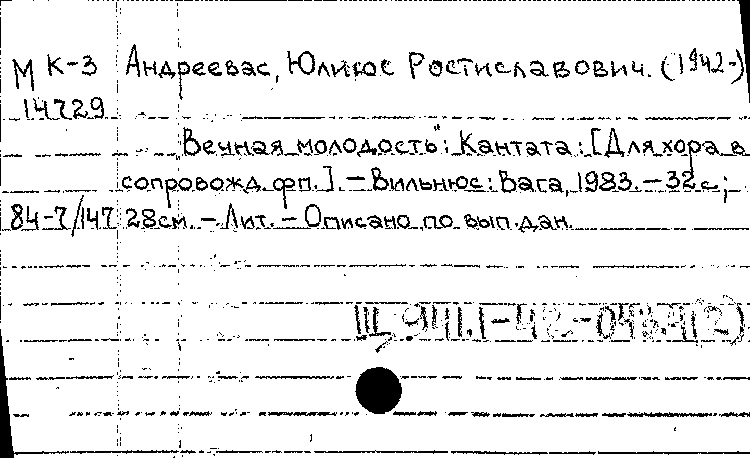 М К-3 Андреевас, Юлиюс Ростиславович. (1942-)
14729
"Вечная молодость": Кантата: [Для хора в
сопровожд. фп.]. - Вильнюс: Вага, 1983. - 32 с.;
84-7/147 28см. - Лит. - Описано по вып. дан.
Щ 941.1-42-